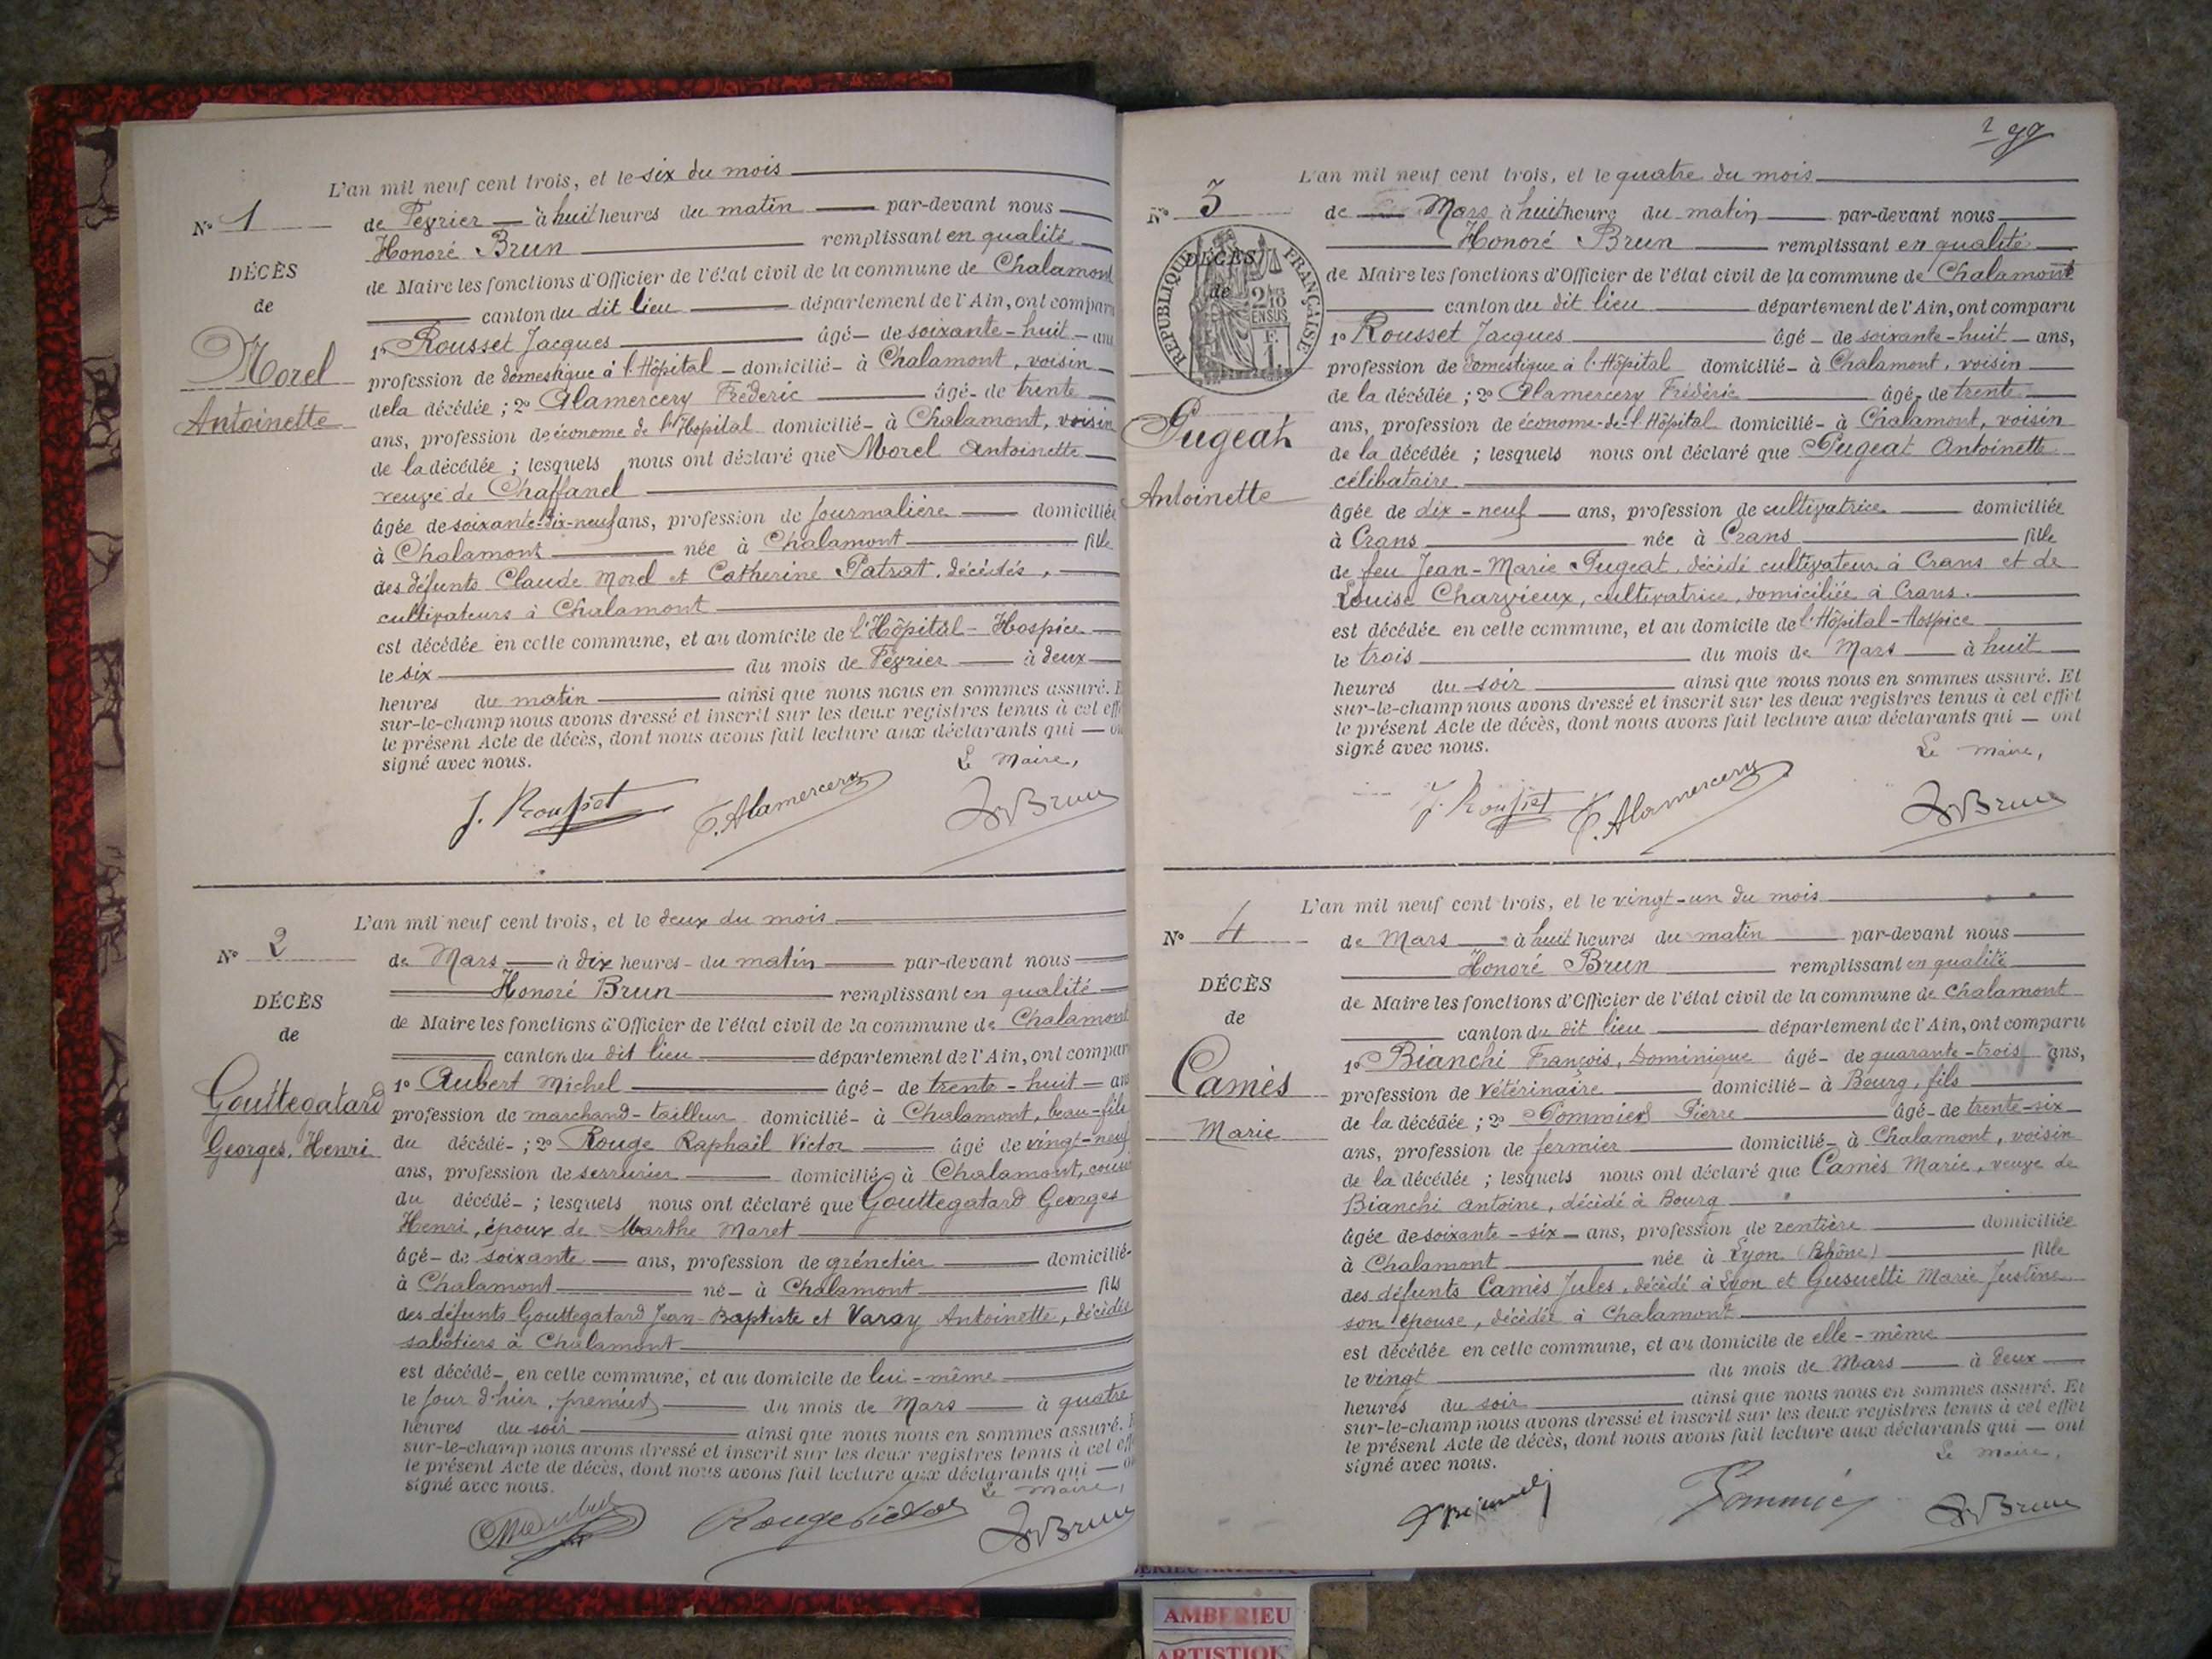 L'an mil neuf cent trois, et le six du mois
N° 1
de Février à huit heures du matin par-devant nous
Honoré Brun remplissant en qualité
DÉCÈS
de Maire les fonctions d'Officier de l'état civil de la commune de Chalamont
de
canton du dit lieu département de l'Ain, ont comparu
1° Rousset Jacques âgé de soixante-huit ans
Morel
profession de domestique à l'Hôpital domicilié à Chalamont, voisin
de la décédée ; 2° Alamercery Frédéric âgé de trente
Antoinette
ans, profession de économe de l'Hopital domicilié à Chalamont, voisin
de la décédée ; lesquels nous ont déclaré que Morel Antoinette
veuve de Chaffanel
âgée de soixante-dix-neuf ans, profession de journalière domiciliée
à Chalamont née à Chalamont fille
des défunts Claude Morel et Catherine Patrat, décédés,
cultivateurs à Chalamont
est décédée en cette commune, et au domicile de l'Hôpital-Hospice
le six du mois de Février à deux
heures du matin ainsi que nous nous en sommes assuré. E
sur-le-champ nous avons dressé et inscrit sur les deux registres tenus à cet eff
le présent Acte de décès, dont nous avons fait lecture aux déclarants qui — on
signé avec nous. Le Maire,
J. Rousset F. Alamercery Brun
L'an mil neuf cent trois, et le deux du mois
N° 2
de Mars à dix heures du matin par-devant nous
Honoré Brun remplissant en qualité
DÉCÈS
de Maire les fonctions d'Officier de l'état civil de la commune de Chalamont
de
canton du dit lieu département de l'Ain, ont compar
1° Aubert Michel âgé de trente-huit ans
Gouttegatard
profession de marchand-tailleur domicilié à Chalamont, beau-fils
Georges, Henri
du décédé ; 2° Rouge Raphaël Victor âgé de vingt-neuf
ans, profession de serrurier domicilié à Chalamont, cousin
du décédé ; lesquels nous ont déclaré que Gouttegatard Georges
Henri, époux de Marthe Maret
âgé de soixante ans, profession de grénetier domicilié
à Chalamont né à Chalamont fils
des défunts Gouttegatard Jean-Baptiste et Varay Antoinette, décédés
sabotiers à Chalamont
est décédé en cette commune, et au domicile de lui-même
le jour d'hier, premier du mois de Mars à quatre
heures du soir ainsi que nous nous en sommes assuré. E
sur-le-champ nous avons dressé et inscrit sur les deux registres tenus à cet eff
le présent Acte de décès, dont nous avons fait lecture aux déclarants qui — on
signé avec nous. Le Maire,
Rouge Victor Brun
2
L'an mil neuf cent trois, et le quatre du mois
N° 3
de Mars à huit heure du matin par-devant nous
Honoré Brun remplissant en qualité
RÉPUBLIQUE FRANÇAISE
DÉCÈS
de
2/10 EN SUS
F. 1
de Maire les fonctions d'Officier de l'état civil de la commune de Chalamont
canton du dit lieu département de l'Ain, ont comparu
1° Rousset Jacques âgé de soixante-huit ans,
profession de domestique à l'Hôpital domicilié à Chalamont, voisin
de la décédée ; 2° Alamercery Frédéric âgé de trente
Pugeat
ans, profession de économe de l'Hôpital domicilié à Chalamont, voisin
de la décédée ; lesquels nous ont déclaré que Pugeat Antoinette
Antoinette
célibataire
âgée de dix-neuf ans, profession de cultivatrice domiciliée
à Crans née à Crans fille
de feu Jean-Marie Pugeat, décédé cultivateur à Crans et de
Louise Charvieux, cultivatrice, domiciliée à Crans.
est décédée en cette commune, et au domicile de l'Hôpital-Hospice
le trois du mois de Mars à huit
heures du soir ainsi que nous nous en sommes assuré. Et
sur-le-champ nous avons dressé et inscrit sur les deux registres tenus à cet effet
le présent Acte de décès, dont nous avons fait lecture aux déclarants qui — ont
signé avec nous. Le Maire,
J. Rousset F. Alamercery Brun
L'an mil neuf cent trois, et le vingt-un du mois
N° 4
de Mars à huit heures du matin par-devant nous
Honoré Brun remplissant en qualité
DÉCÈS
de Maire les fonctions d'Officier de l'état civil de la commune de Chalamont
de
canton du dit lieu département de l'Ain, ont comparu
1° Bianchi François, Dominique âgé de quarante-trois ans,
Camès
profession de Vétérinaire domicilié à Bourg, fils
de la décédée ; 2° Pommier Pierre âgé de trente-six
Marie
ans, profession de fermier domicilié à Chalamont, voisin
de la décédée ; lesquels nous ont déclaré que Camès Marie, veuve de
Bianchi Antoine, décédé à Bourg
âgée de soixante-six ans, profession de rentière domiciliée
à Chalamont née à Lyon (Rhône) fille
des défunts Camès Jules, décédé à Lyon et Gusuetti Marie Justine
son épouse, décédée à Chalamont
est décédée en cette commune, et au domicile de elle-même
le vingt du mois de Mars à deux
heures du soir ainsi que nous nous en sommes assuré. Et
sur-le-champ nous avons dressé et inscrit sur les deux registres tenus à cet effet
le présent Acte de décès, dont nous avons fait lecture aux déclarants qui — ont
signé avec nous. Le Maire,
Pommier Brun
AMBERIEU
ARTISTIQUE